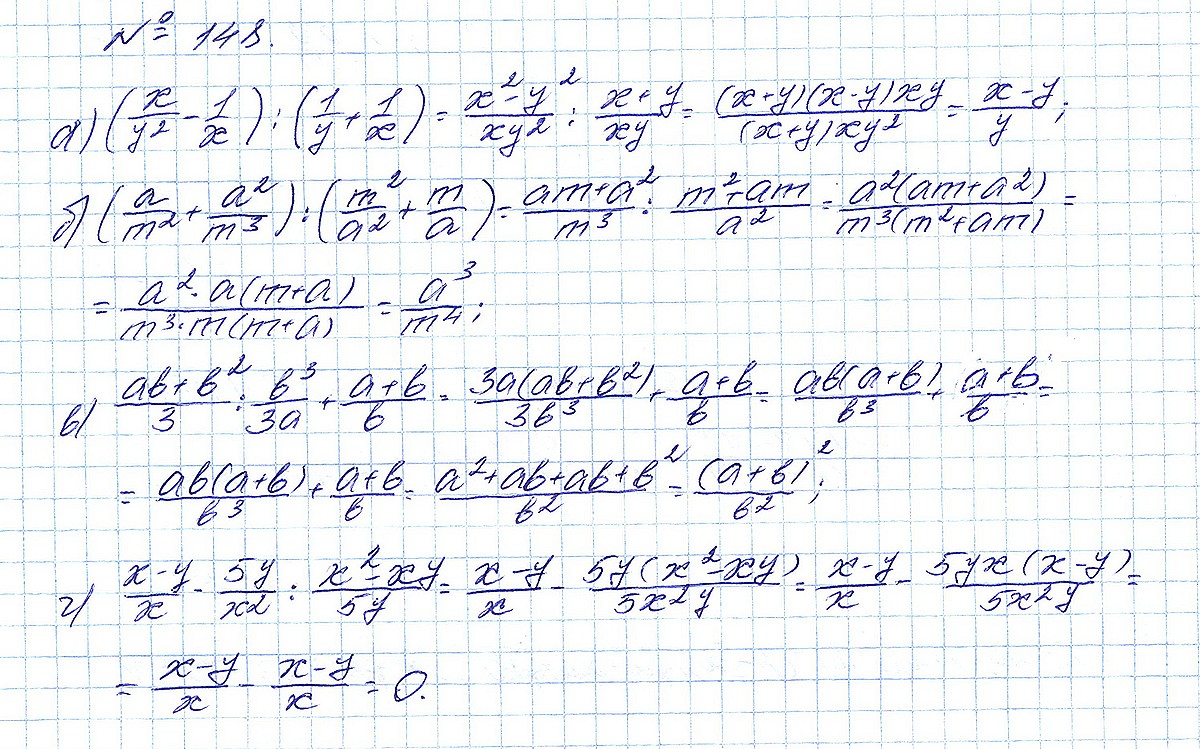 № 148.
а) (x/y² - 1/x) : (1/y + 1/x) = x²-y²/xy² : x+y/xy = (x+y)(x-y)xy/(x+y)xy² = x-y/y;
б) (a/m² + a²/m³) : (m²/a² + m/a) = am+a²/m³ : m²+am/a² = a²(am+a²)/m³(m²+am) =
= a²·a(m+a)/m³·m(m+a) = a³/m⁴;
в) ab+b²/3 : b³/3a + a+b/b = 3a(ab+b²)/3b³ + a+b/b = ab(a+b)/b³ + a+b/b =
= ab(a+b)/b³ + a+b/b = a²+ab+ab+b²/b² = (a+b)²/b²;
г) x-y/x - 5y/x2 : x²-xy/5y = x-y/x - 5y(x²-xy)/5x²y = x-y/x - 5yx(x-y)/5x²y =
= x-y/x - x-y/x = 0.